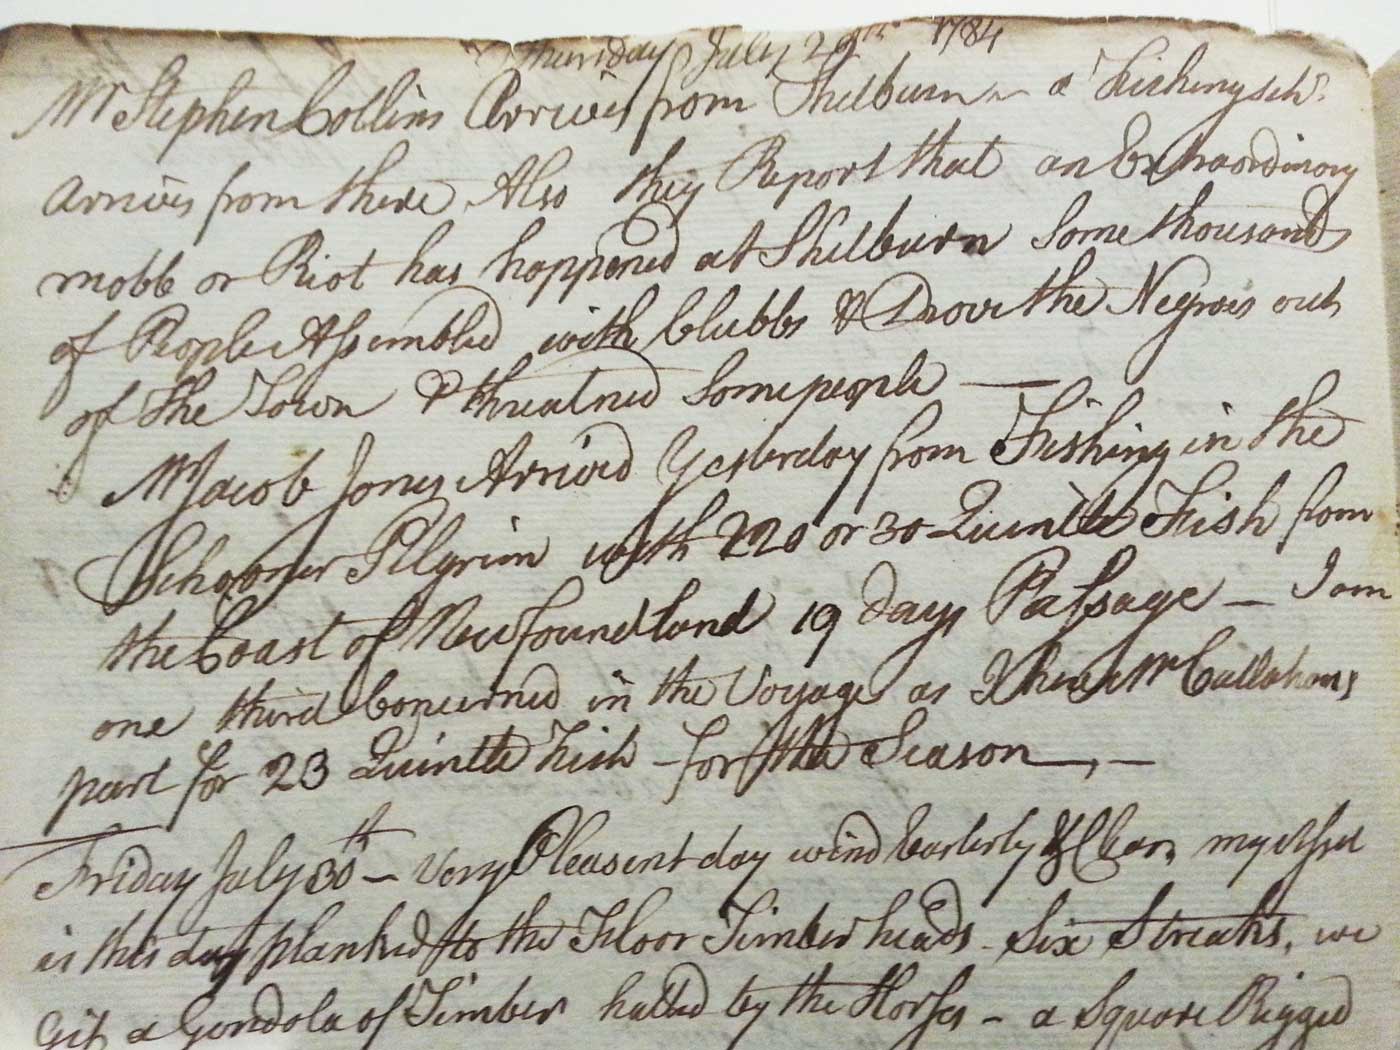 Thursday July 29th 1784
Mr Stephen Collins Arrives from Shelburn - a Fishing schr
arrives from there Also they Report that an Extraordinary
mobb or Riot has happened at Shelburn Some thousands
of People Assembled with Clubbs & Drove the Negroes out
of the Town & threatned Some people —
Mr Jacob Jones Arrived Yesterday from Fishing in the
Schooner Pilgrim with 220 or 30 Quintle Fish from
the Coast of Newfoundland 19 days Passage — I am
one third Concerned in the Voyage as I hire Mr Callahans
part for 23 Quintle Fish - for the Season —, —
Friday July 30th — Very Pleasent day wind Easterly & Clear, my
is this day planked to the Floor Timber heads - Six Streaks, we
Git a Gondola of Timber halled by the Horses — a Square Rigged